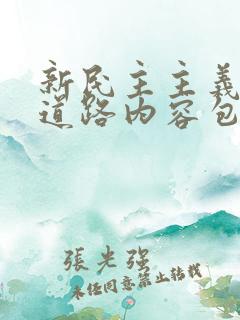 新民主主義
道路内容包
張光强
未任同意禁止转载